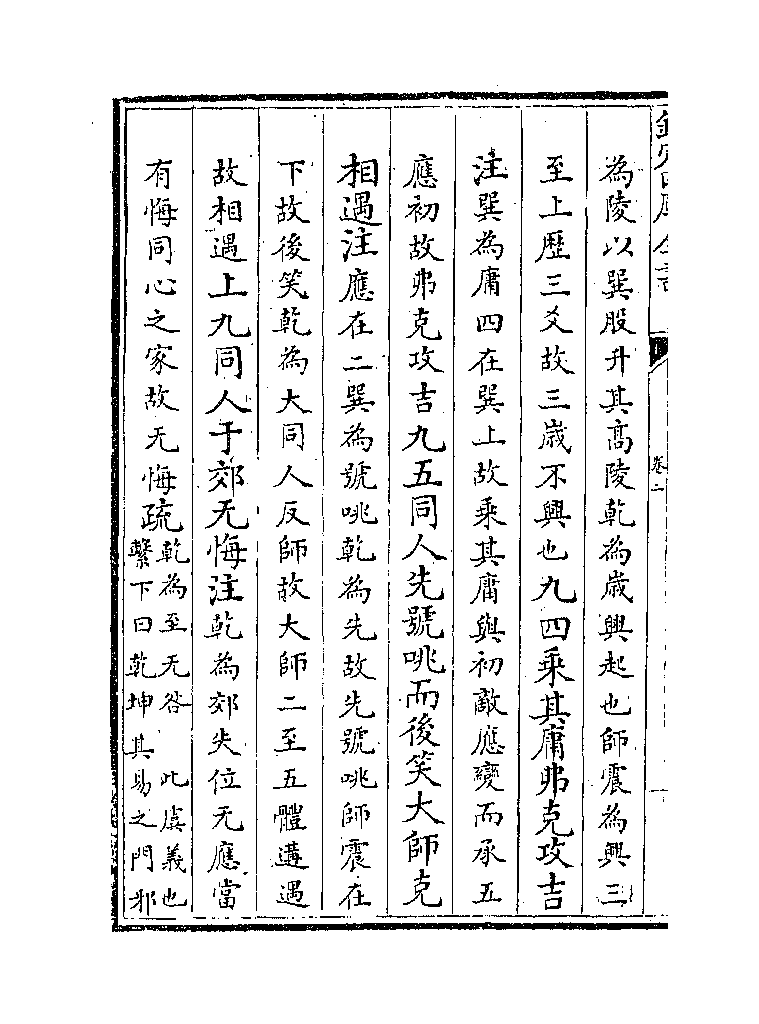 欽定四庫全書
卷二
為陵以巽股升其髙陵乾為歲興起也師震為興三
至上歷三爻故三歲不興也九四乘其庸弗克攻吉
注巽為庸四在巽上故乘其庸與初敵應變而承五
應初故弗克攻吉九五同人先號咷而後笑大師克
相遇注應在二巽為號咷乾為先故先號咷師震在
下故後笑乾為大同人反師故大師二至五體遘遇
故相遇上九同人于郊无悔注乾為郊失位无應當
有悔同心之家故无悔疏乾為至无咎　此虞義也
繫下曰乾坤其易之門邪